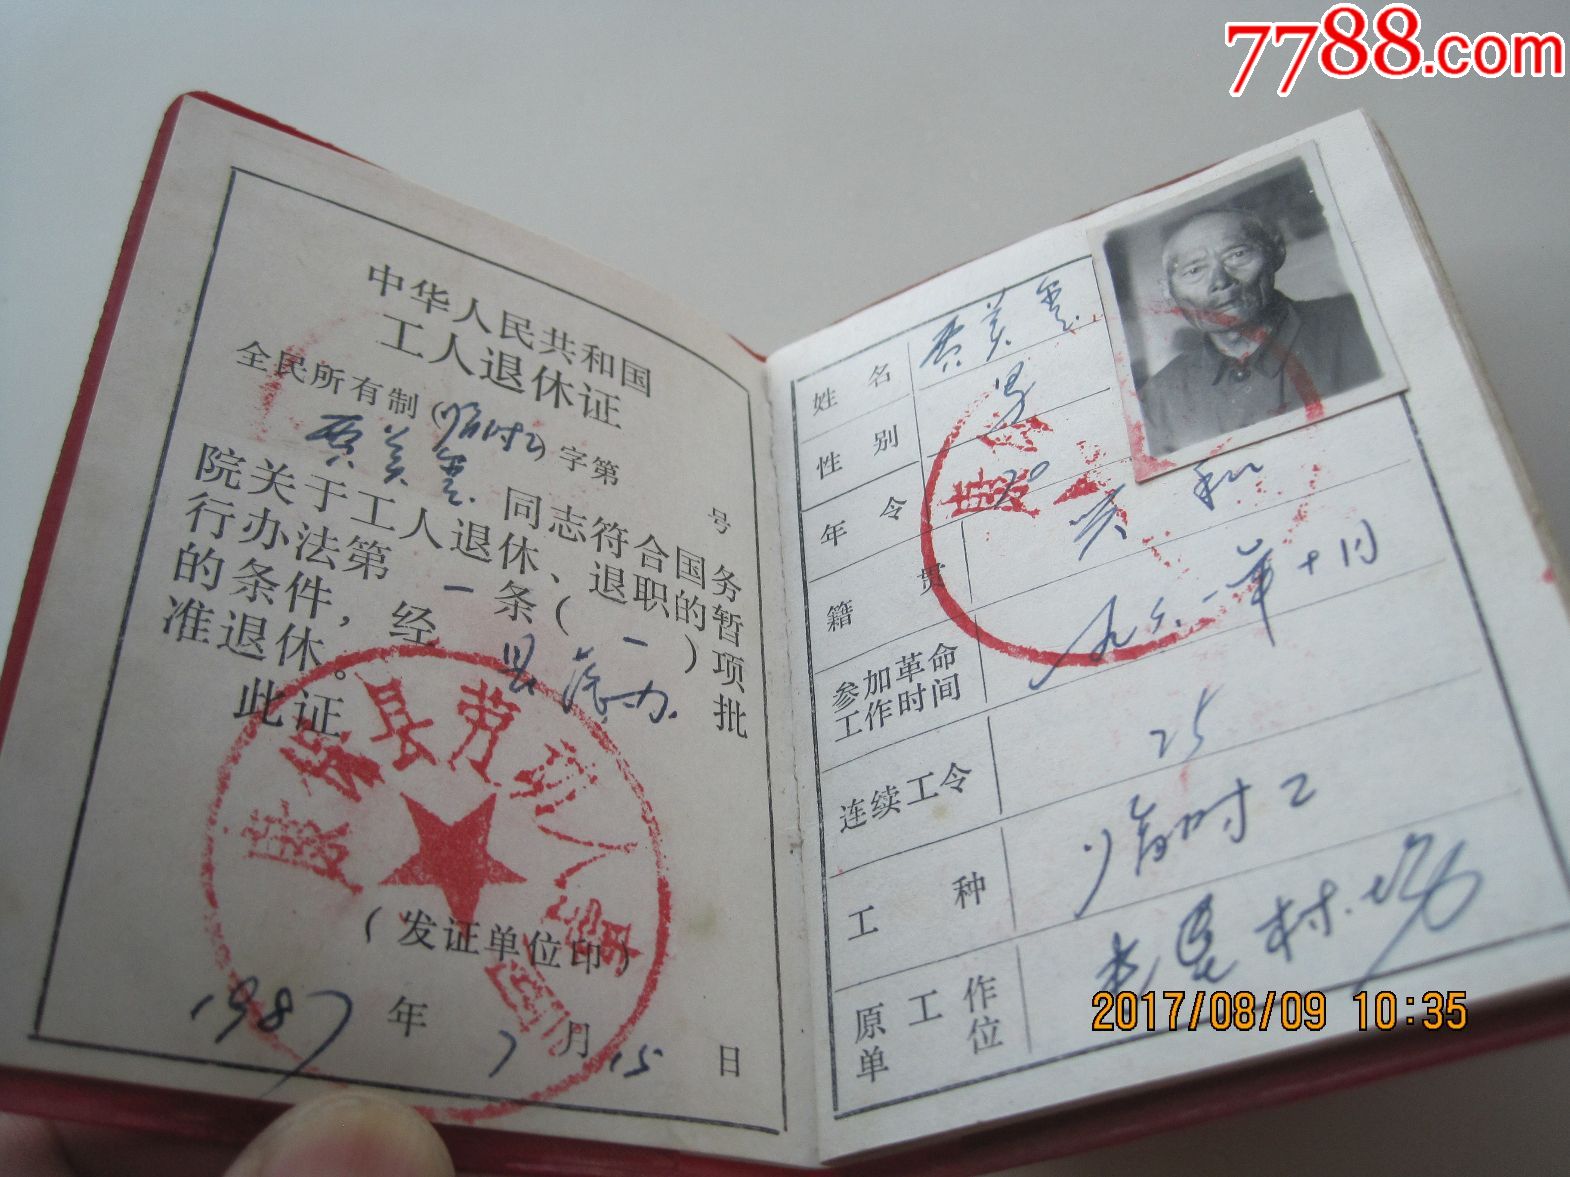 7788.com
中华人民共和国
工人退休证
全民所有制(临时工)字第 号
贾美玺 同志符合国务
院关于工人退休、退职的暂
行办法第一条(一)项
的条件,经县 办 批
准退休。
此证
县劳动人事
(发证单位印)
1987年7月15日
姓名 贾美玺
性别 男
年令 70
籍贯
参加革命
工作时间 九六一年十月
连续工令 25
工种 临时工
原工作
单位 村
2017/08/09 10:35